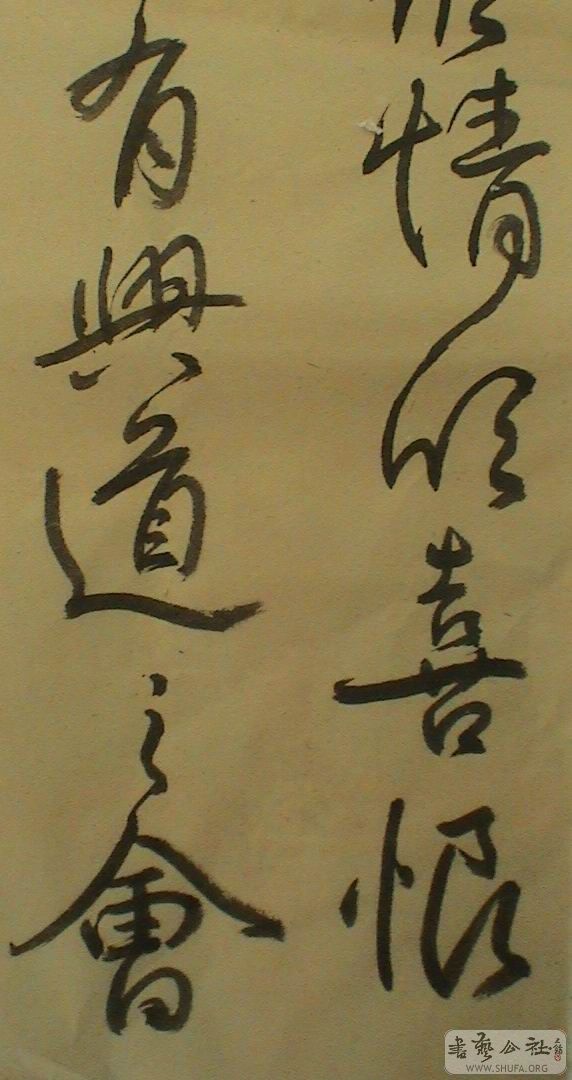 情欣喜恨
有興道之會
書藝公社
WWW.SHUFA.ORG